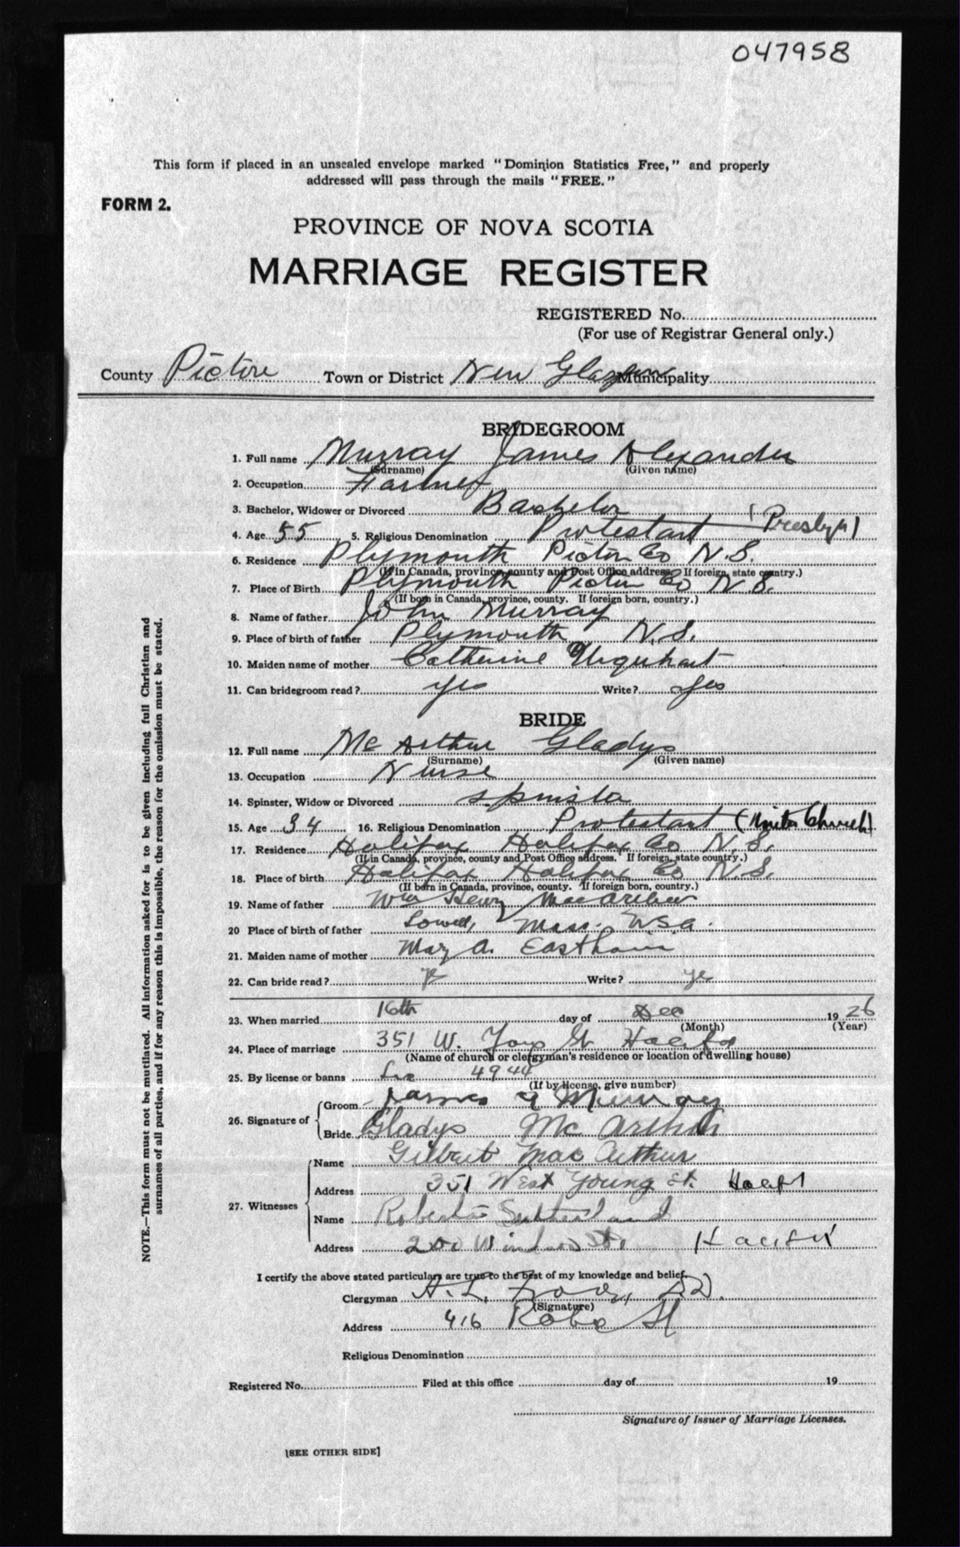 047958
This form if placed in an unsealed envelope marked "Dominion Statistics Free," and properly
addressed will pass through the mails "FREE."
FORM 2.
PROVINCE OF NOVA SCOTIA
MARRIAGE REGISTER
REGISTERED No.
(For use of Registrar General only.)
County Pictou Town or District New Glasgow Municipality
BRIDEGROOM
1. Full name Murray James Alexander
(Surname) (Given name)
2. Occupation Farmer
3. Bachelor, Widower or Divorced Bachelor
4. Age 55 5. Religious Denomination Protestant (Presbyn)
6. Residence Plymouth Pictou Co N.S.
(If in Canada, province, county and Post Office address. If foreign, state country.)
7. Place of Birth Plymouth Pictou Co N.S.
(If born in Canada, province, county. If foreign born, country.)
8. Name of father John Murray
9. Place of birth of father Plymouth N.S.
10. Maiden name of mother Catherine Urquhart
11. Can bridegroom read? yes Write? yes
BRIDE
12. Full name Mc Arthur Gladys
(Surname) (Given name)
13. Occupation Nurse
14. Spinster, Widow or Divorced spinster
15. Age 34 16. Religious Denomination Protestant (United Church)
17. Residence Halifax Halifax Co N.S.
(If in Canada, province, county and Post Office address. If foreign, state country.)
18. Place of birth Halifax Halifax Co N.S.
(If born in Canada, province, county. If foreign born, country.)
19. Name of father Wm Henry MacArthur
20 Place of birth of father Lowell, Mass. USA.
21. Maiden name of mother May A. Eastham
22. Can bride read? Write? ye
23. When married 16th day of Dec 1926
(Month) (Year)
24. Place of marriage 351 W. St
(Name of church or clergyman's residence or location of dwelling house)
25. By license or banns Lic 4944
(If by license, give number)
26. Signature of Groom James A Murray
Bride Gladys Mc Arthur
27. Witnesses Name Gilbert MacArthur
Address 351 West Young St.
Name Roberta Sutherland
Address 200 Windsor St.
I certify the above stated particulars are true to the best of my knowledge and belief.
Clergyman H.L. DD.
(Signature)
Address 416 Robie St
Religious Denomination
Registered No. Filed at this office day of 19
Signature of Issuer of Marriage Licenses.
[SEE OTHER SIDE]
NOTE.—This form must not be mutilated. All information asked for is to be given including full Christian and
surnames of all parties, and if for any reason this is impossible, the reason for the omission must be stated.